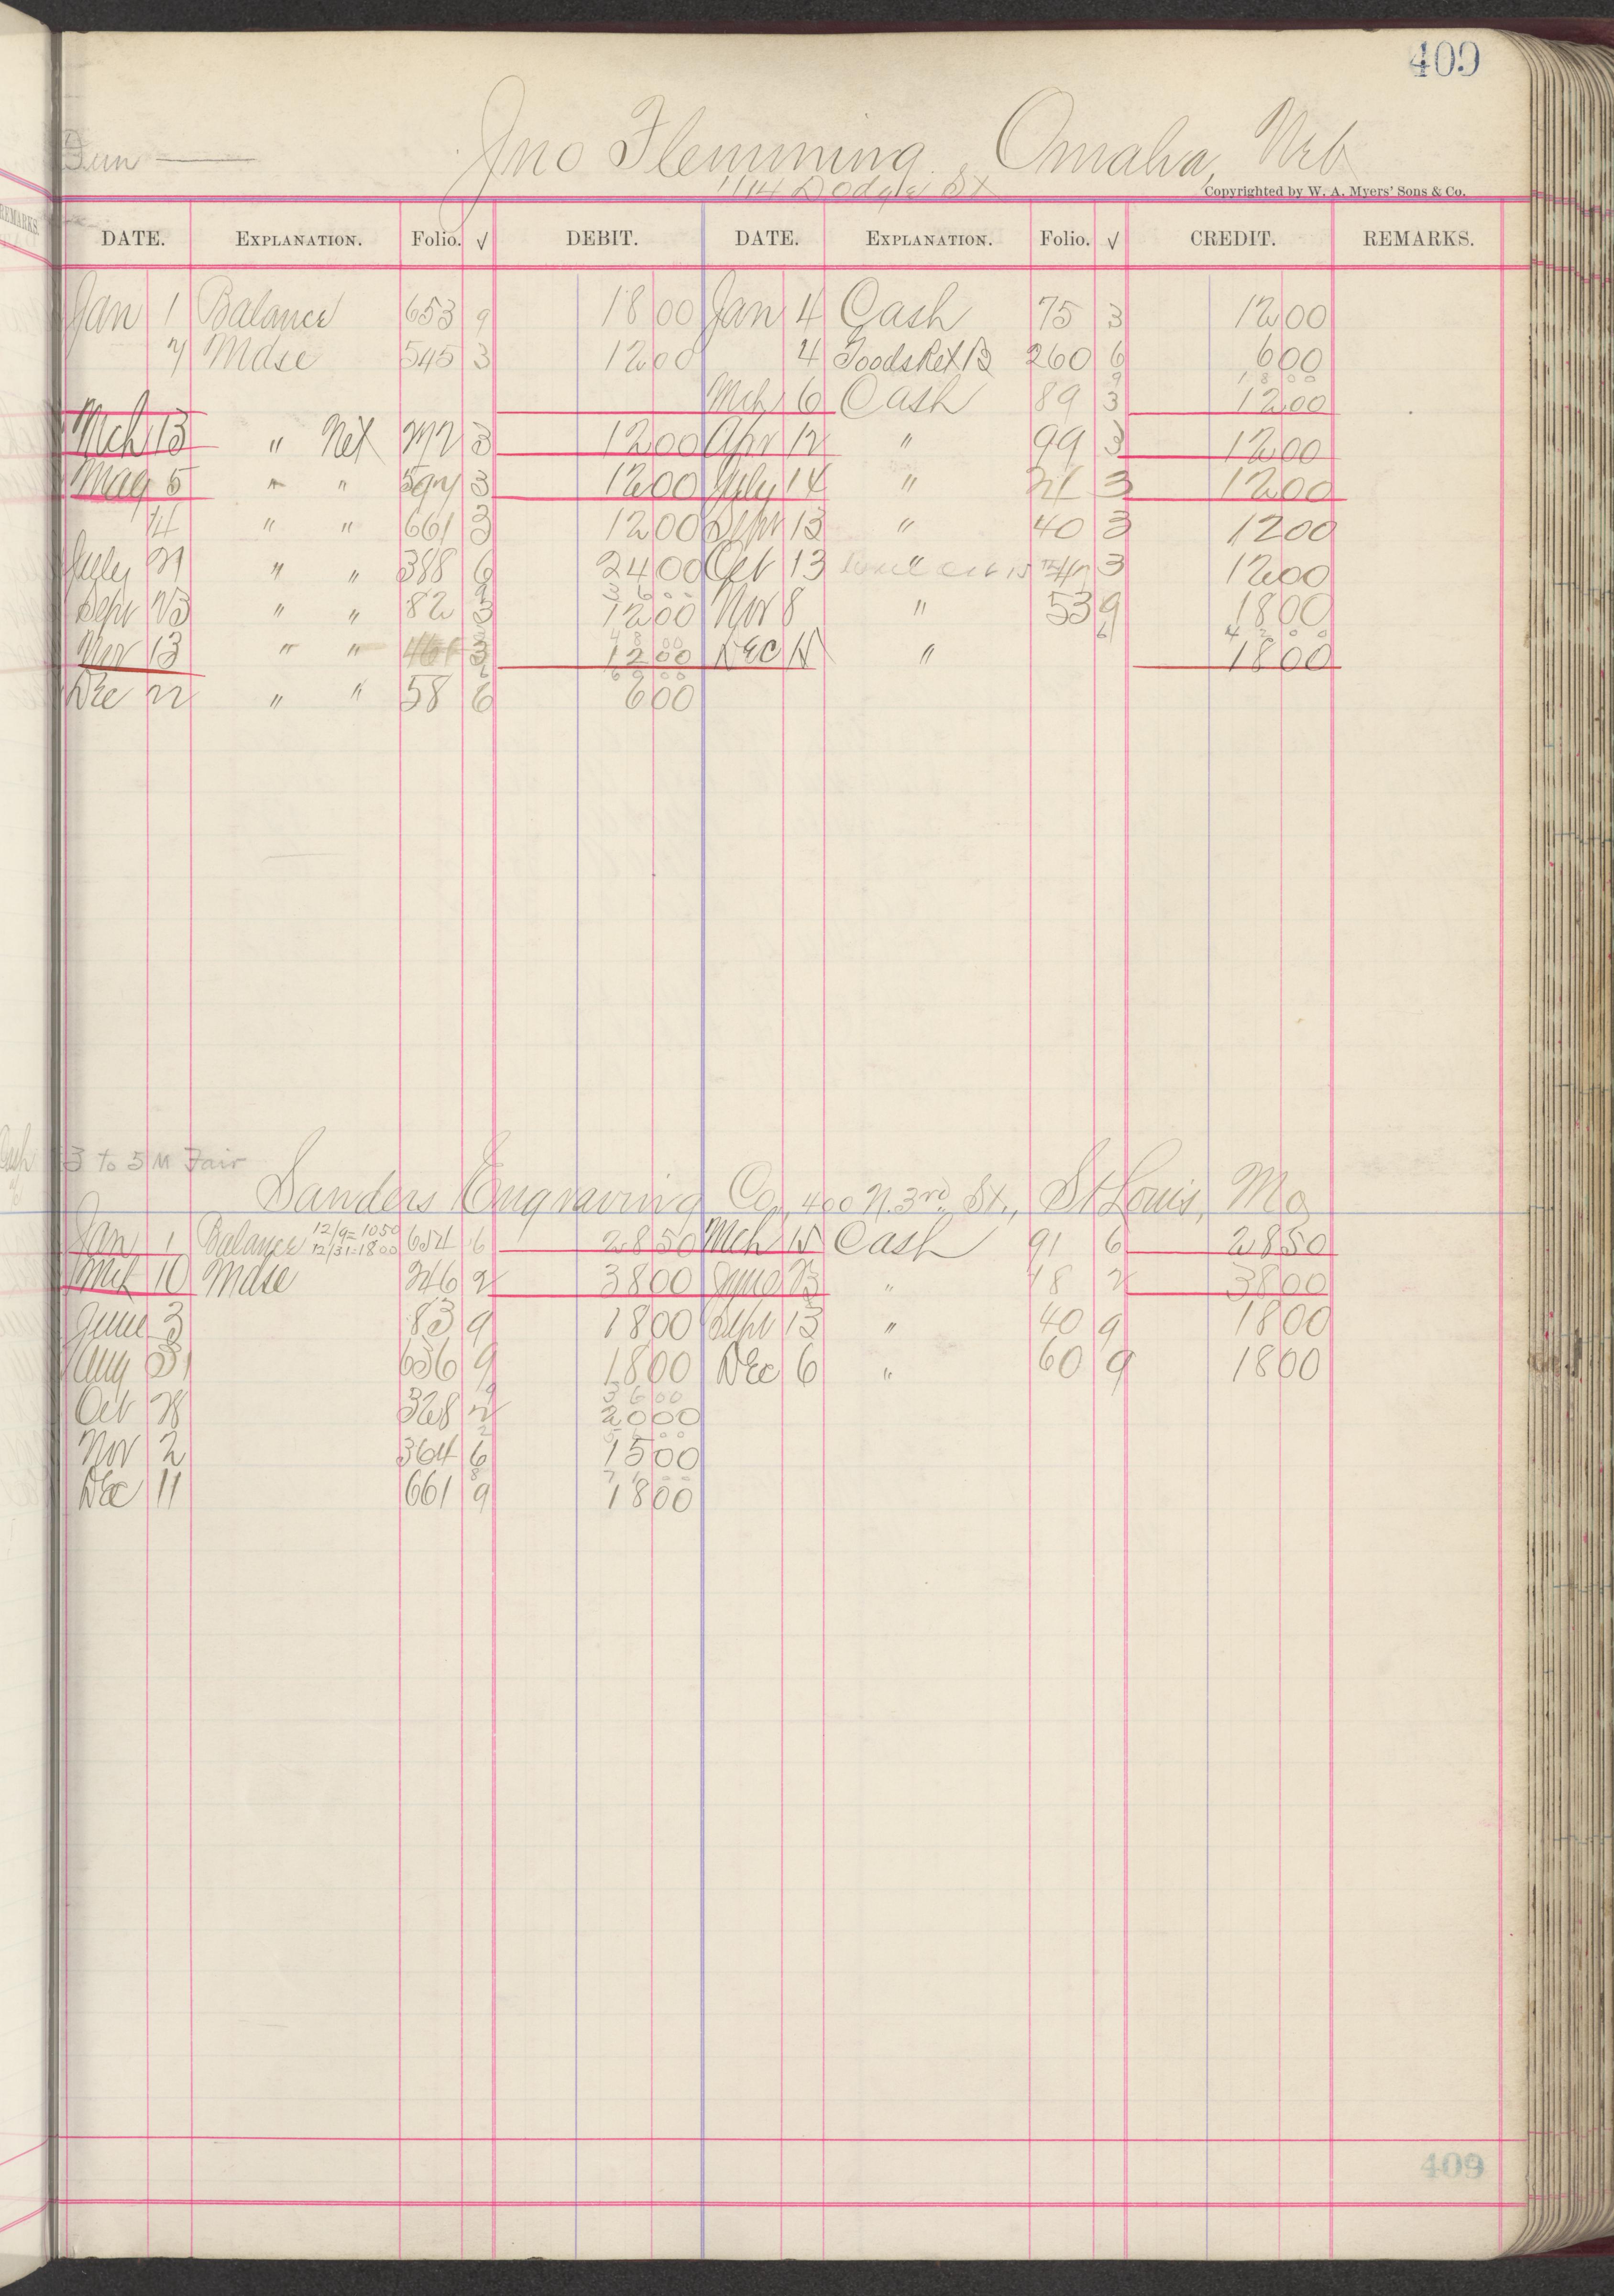 409
Dun — Jno Flemming, Omaha, Neb
1114 Dodge St
Copyrighted by W. A. Myers' Sons & Co.
DATE. EXPLANATION. Folio. √ DEBIT. DATE. EXPLANATION. Folio. √ CREDIT. REMARKS.
Jan 1 Balance 653 9 18 00 Jan 4 Cash 75 3 12 00
7 Mdse 545 3 12 00 4 Goods Ret 13 260 6 6 00
18 00
Mch 6 Cash 89 3 12 00
Mch 13 " Net 3 12 00 Apr 12 " 99 3 12 00
May 5 " " 597 3 12 00 July 14 " 3 12 00
14 " " 661 3 12 00 Sept 13 " 40 3 12 00
July 31 " " 388 6 24 00 Oct 13 " 3 12 00
36 00
Sept 23 " " 82 3 12 00 Nov 8 " 53 9 18 00
48 00 42 00
Nov 13 " " 3 12 00 Dec 15 " 18 00
60 00
Dec 22 " " 58 6 6 00
3 to 5 M Fair
Sanders Engraving Co, 400 N. 3rd St., St Louis, Mo
Jan 1 Balance 12/9=1050 12/31-1800 654 6 28 50 Mch 15 Cash 91 6 28 50
Mch 10 Mdse 246 2 38 00 June 23 " 18 2 38 00
June 3 83 9 18 00 Sept 13 " 40 9 18 00
Aug 31 636 9 18 00 Dec 6 " 60 9 18 00
36 00
Oct 28 328 2 20 00
Nov 2 364 6 15 00
Dec 11 661 9 18 00
409